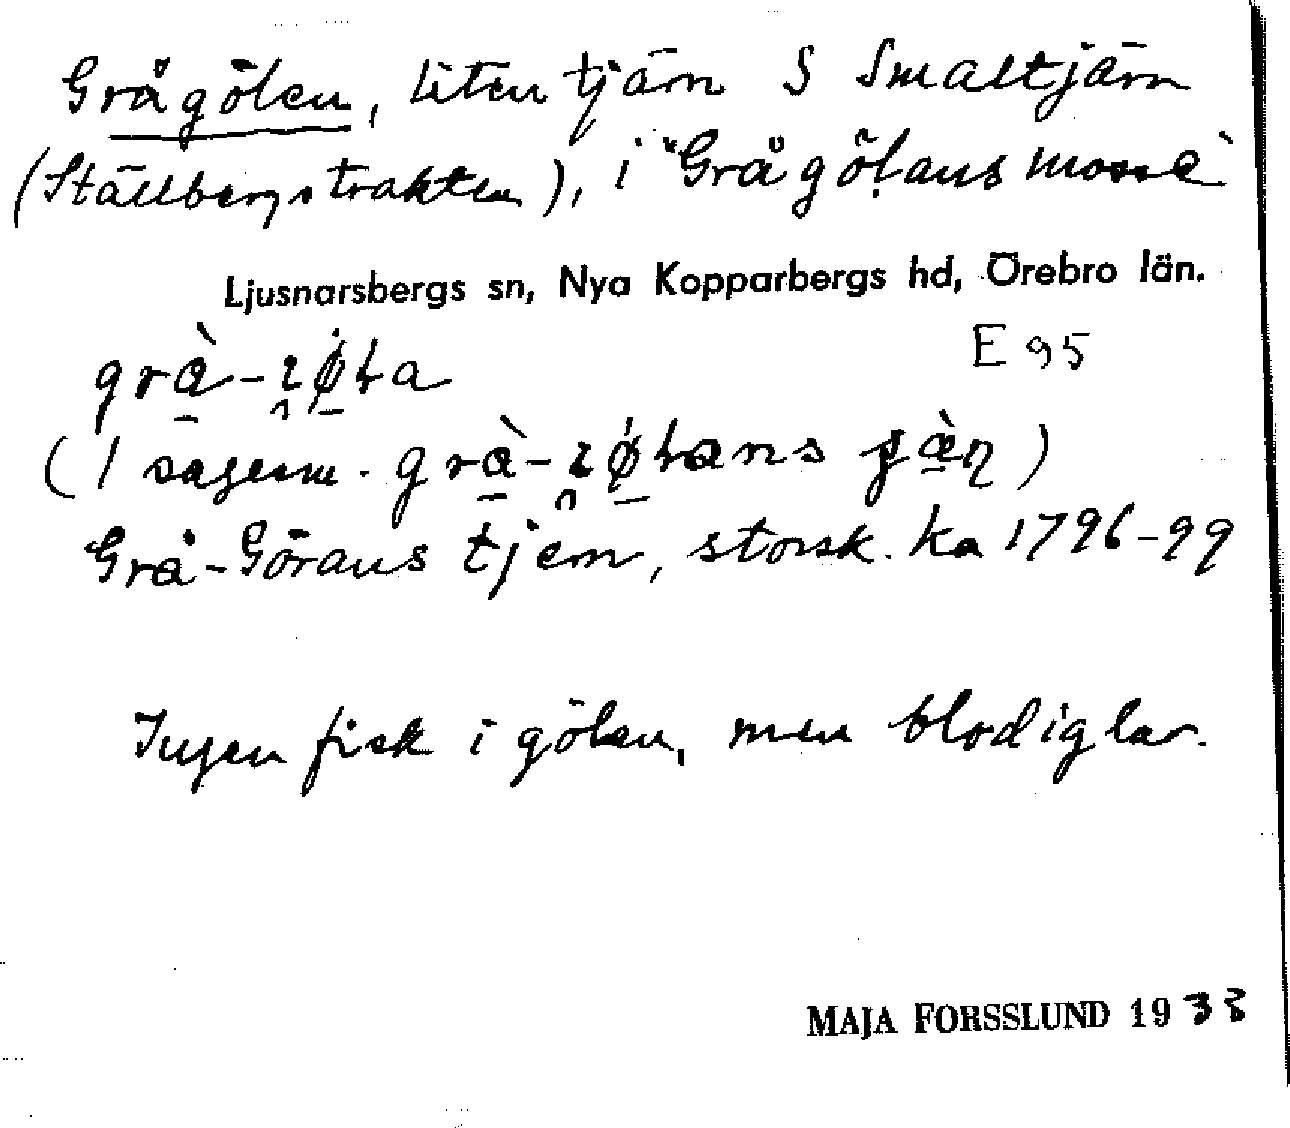 Grågölen, liten tjärn S Smaltjärn
(Ställbergstrakten), i "Grågölans mosse"
Ljusnarsbergs sn, Nya Kopparbergs hd, Örebro län.
E 95
(I sagesm.
Grå-Görans tjern, storsk. ka 1796-99
Ingen fisk i gölen, men blodiglar.
MAJA FORSSLUND 1933